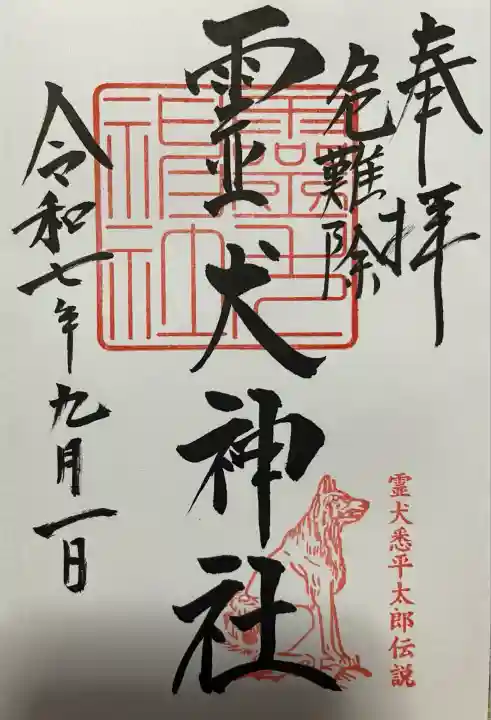 奉拝
危難除
霊犬神社
令和七年九月一日
霊犬悉平太郎伝説
霊犬神社